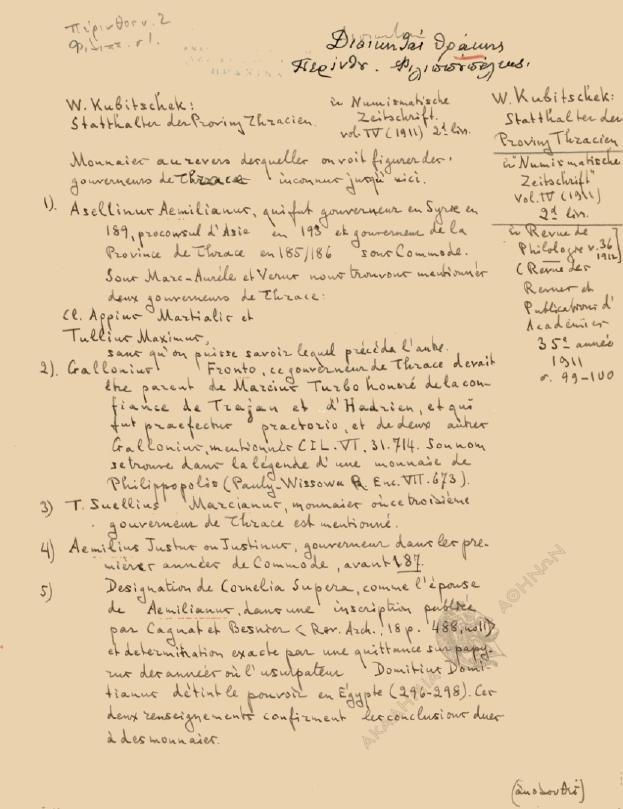 Πέρινθον ν. 2
Φιλιππ. σ 1.
Διοικηταί Θράκης
Περίνθ. Φιλιππουπόλεως.
W. Kubitschek:
Statthalter der Provinz Thracien.
in Numismatische
Zeitschrift.
vol. IV (1911) 2d liv.
Monnaies au revers desquelles on voit figurer des
gouverneurs de Thrace inconnus jusqu'ici.
1). Asellinus Aemilianus, qui fut gouverneur en Syrie en
189, proconsul d'Asie en 193 et gouverneur de la
Province de Thrace en 185/186 sous Commode.
Sous Marc-Aurèle et Verus nous trouvons mentionnés
deux gouverneurs de Thrace:
Cl. Appius Martialis et
Tullius Maximus,
sans qu'on puisse savoir lequel précéda l'autre.
2). Gallonius Fronto, ce gouverneur de Thrace devait
être parent de Marcius Turbo honoré de la con-
fiance de Trajan et d'Hadrien, et qui
fut praefectus praetorio, et de deux autres
Gallonius, mentionnés CIL. VI, 31.714. Son nom
se trouve dans la légende d'une monnaie de
Philippopolis (Pauly-Wissowa R. Enc. VII. 673).
3) T. Suellius Marcianus, monnaies où ce troisième
gouverneur de Thrace est mentionné.
4) Aemilius Justus ou Justinus, gouverneur dans les pre-
mières années de Commode, avant 187.
5) Designation de Cornelia Supera, comme l'épouse
de Aemilianus, dans une inscription publiée
par Cagnat et Besnier < Rev. Arch., 18 p. 488, no 11>
et détermination exacte par une quittance sur papy-
rus des années où l'usurpateur Domitius Domi-
tianus détint le pouvoir en Égypte (296-298). Ces
deux renseignements confirment les conclusions dues
à des monnaies.
W. Kubitschek:
Statthalter der
Provinz Thracien
in "Numismatische
Zeitschrift"
vol. IV (1911)
2d liv.
in Revue de
Philologie v. 36
1912
(Revue des
Revues et
Publications d'
Académies
35e année
1911
σ. 99-100
(ἀκολουθεῖ)
ΑΚΑΔΗΜΙΑ ΑΘΗΝΩΝ